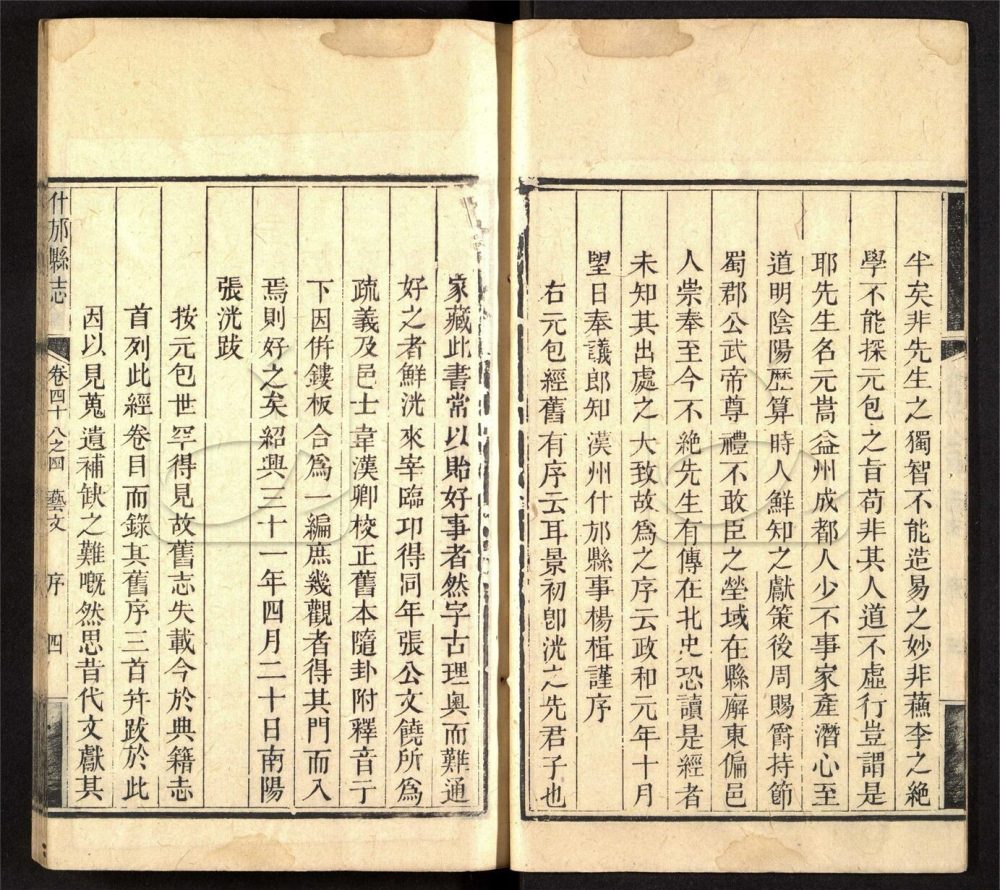 半矣非先生之獨智不能造易之妙非蘓李之絶
學不能探元包之旨苟非其人道不虛行豈謂是
耶先生名元嵩益州成都人少不事家產潛心至
道明陰陽歴算時人鮮知之獻策後周賜爵持節
蜀郡公武帝尊禮不敢臣之塋域在縣廨東偏邑
人崇奉至今不絶先生有傳在北史恐讀是經者
未知其出處之大致故爲之序云政和元年十月
朢日奉議郎知漢州什邡縣事楊楫謹序
右元包經舊有序云耳景初卽洸之先君子也
家藏此書常以貽好事者然字古理奥而難通
好之者鮮洸來宰臨卭得同年張公文饒所爲
疏義及邑士韋漢卿校正舊本隨卦附釋音于
下因併鏤板合爲一編庶幾觀者得其門而入
焉則好之矣紹興三十一年四月二十日南陽
張洸跋
按元包世罕得見故舊志失載今於典籍志
首列此經卷目而錄其舊序三首并跋於此
因以見蒐遺補缺之難嘅然思昔代文獻其
什邡縣志 卷四十八之四 藝文 序 四